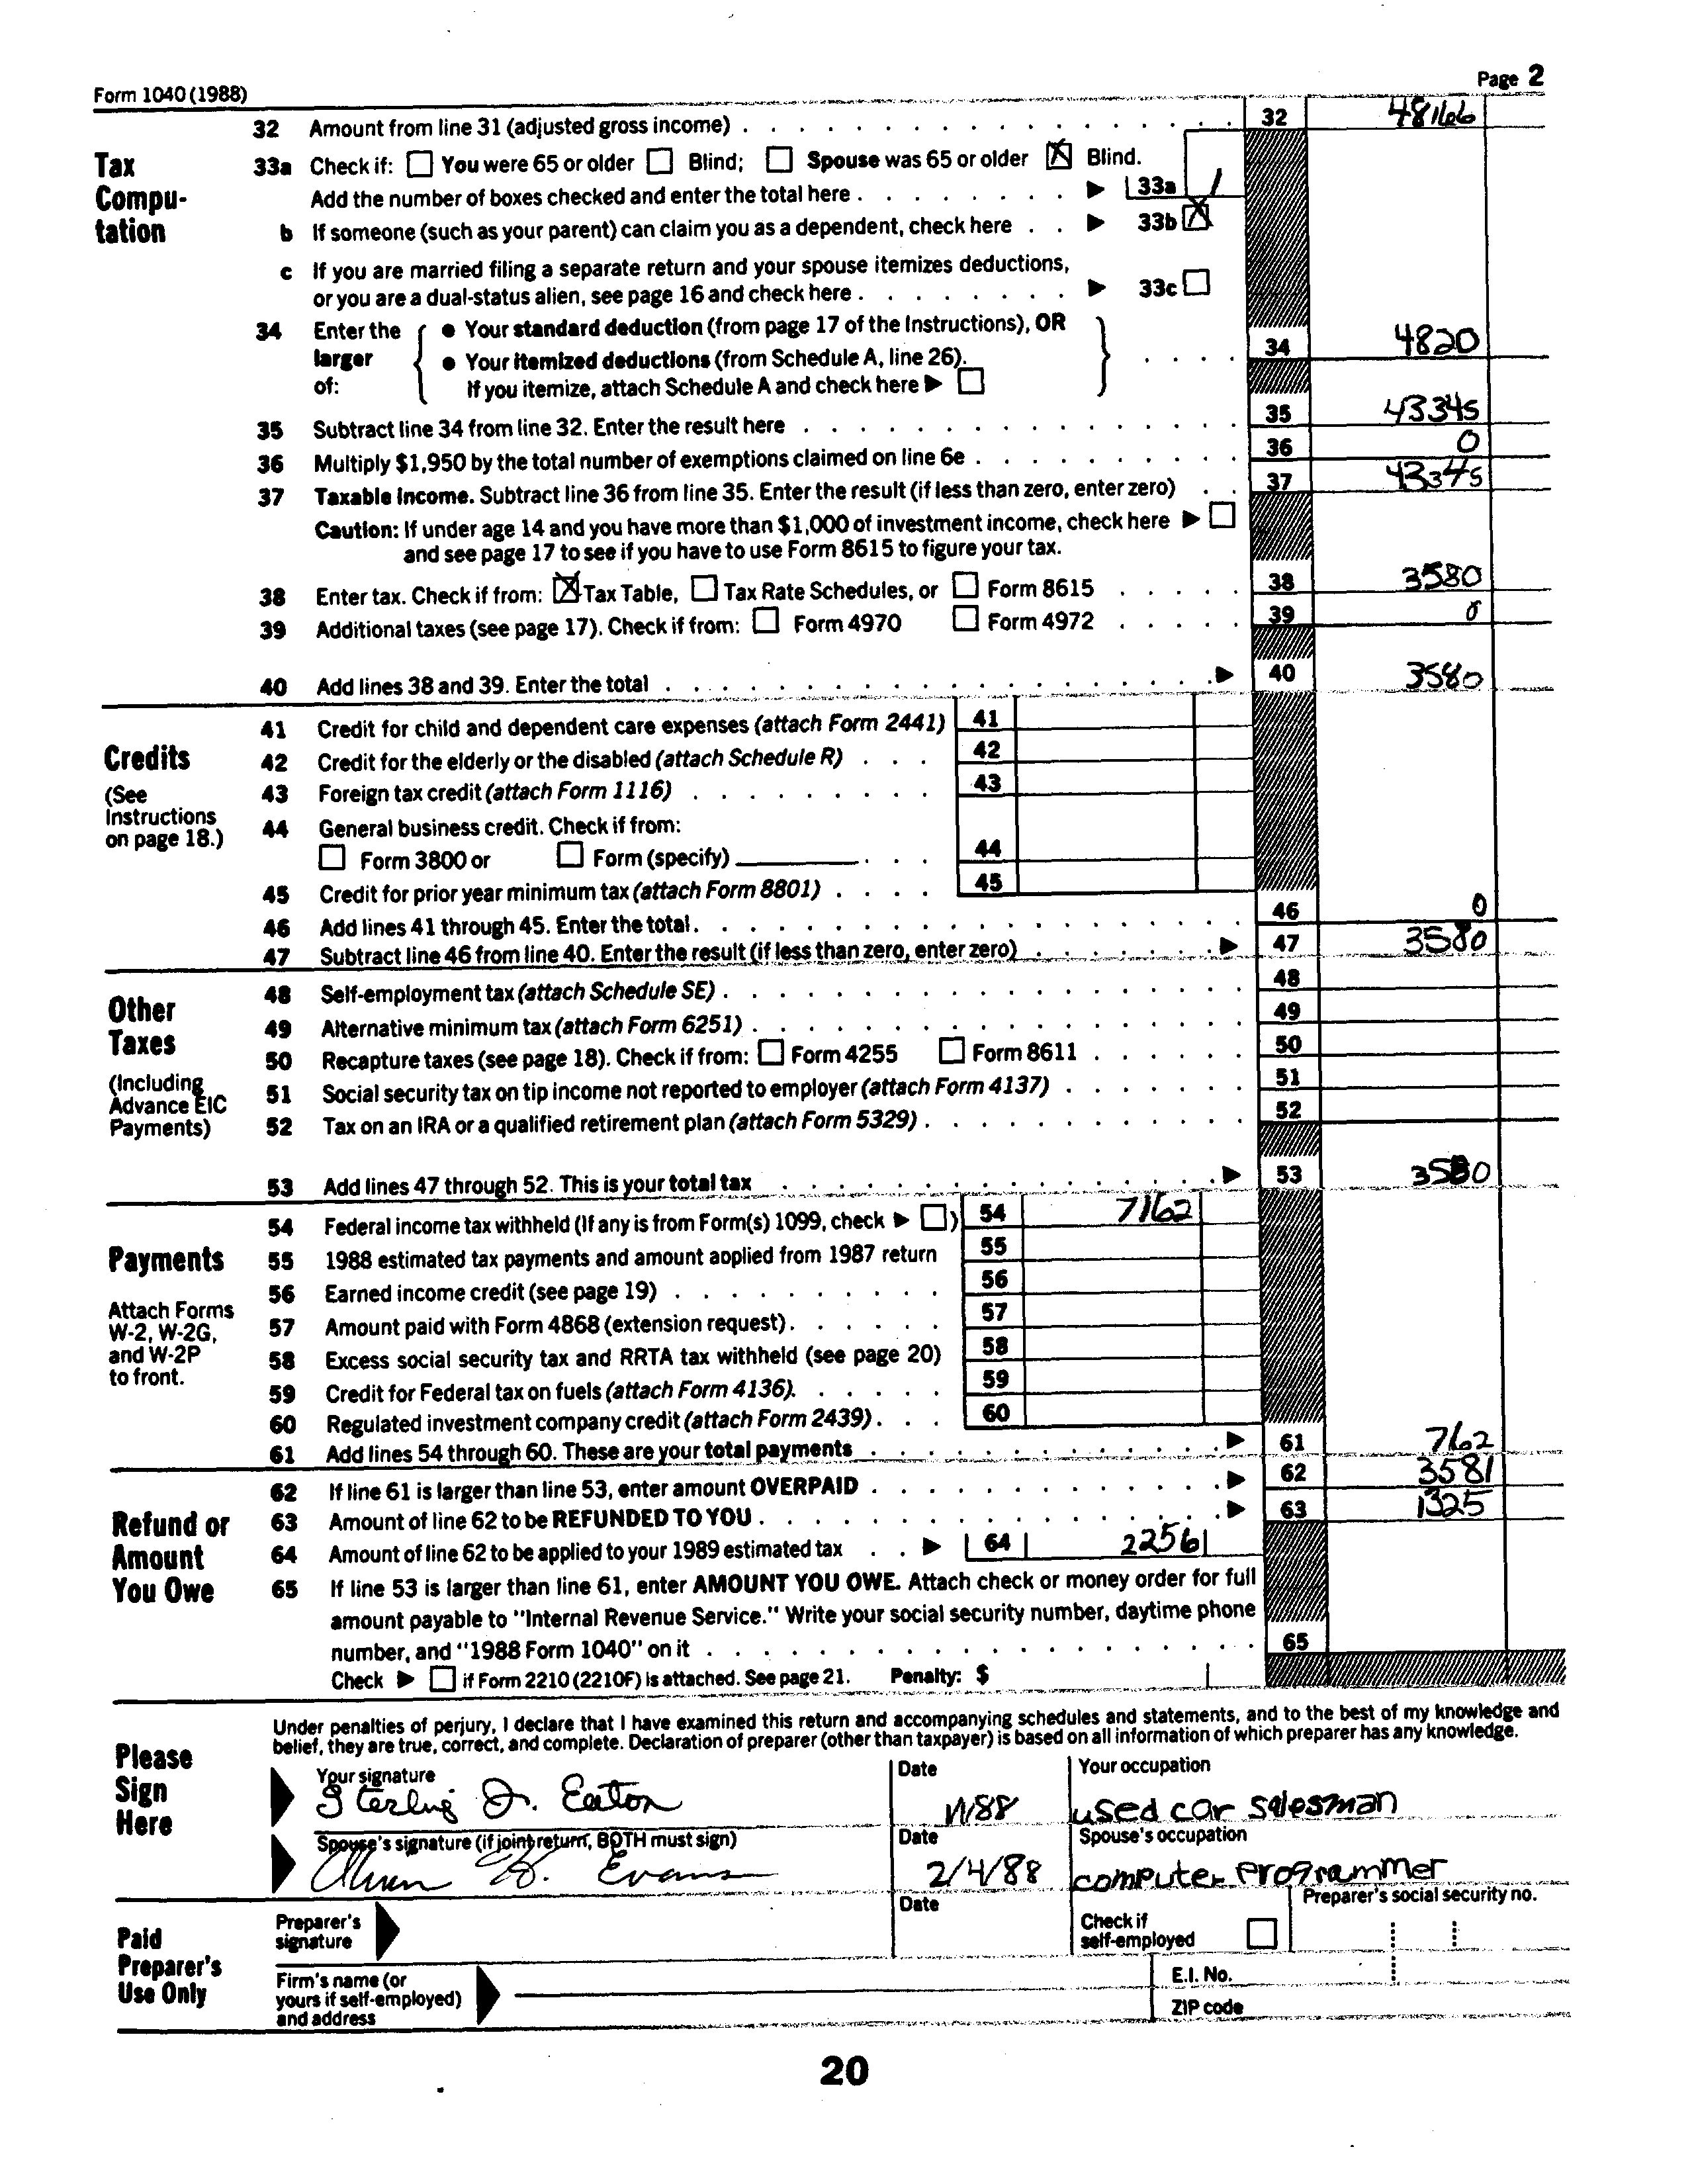 Form 1040 (1988)
Page 2
32 Amount from line 31 (adjusted gross income) 32 48166
Tax Compu-tation
33a Check if: You were 65 or older Blind; Spouse was 65 or older X Blind.
Add the number of boxes checked and enter the total here 33a 1
b If someone (such as your parent) can claim you as a dependent, check here 33b X
c If you are married filing a separate return and your spouse itemizes deductions,
or you are a dual-status alien, see page 16 and check here 33c
34 Enter the larger of:
• Your standard deduction (from page 17 of the Instructions), OR
• Your itemized deductions (from Schedule A, line 26).
If you itemize, attach Schedule A and check here
34 4820
35 Subtract line 34 from line 32. Enter the result here 35 43345
36 Multiply $1,950 by the total number of exemptions claimed on line 6e 36 0
37 Taxable income. Subtract line 36 from line 35. Enter the result (if less than zero, enter zero) 37 43345
Caution: If under age 14 and you have more than $1,000 of investment income, check here
and see page 17 to see if you have to use Form 8615 to figure your tax.
38 Enter tax. Check if from: X Tax Table, Tax Rate Schedules, or Form 8615 38 3580
39 Additional taxes (see page 17). Check if from: Form 4970 Form 4972 39 0
40 Add lines 38 and 39. Enter the total 40 3580
Credits
(See Instructions on page 18.)
41 Credit for child and dependent care expenses (attach Form 2441) 41
42 Credit for the elderly or the disabled (attach Schedule R) 42
43 Foreign tax credit (attach Form 1116) 43
44 General business credit. Check if from:
Form 3800 or Form (specify) 44
45 Credit for prior year minimum tax (attach Form 8801) 45
46 Add lines 41 through 45. Enter the total. 46 0
47 Subtract line 46 from line 40. Enter the result (if less than zero, enter zero) 47 3580
Other Taxes
(Including Advance EIC Payments)
48 Self-employment tax (attach Schedule SE) 48
49 Alternative minimum tax (attach Form 6251) 49
50 Recapture taxes (see page 18). Check if from: Form 4255 Form 8611 50
51 Social security tax on tip income not reported to employer (attach Form 4137) 51
52 Tax on an IRA or a qualified retirement plan (attach Form 5329) 52
53 Add lines 47 through 52. This is your total tax 53 3580
Payments
Attach Forms W-2, W-2G, and W-2P to front.
54 Federal income tax withheld (If any is from Form(s) 1099, check ) 54 7162
55 1988 estimated tax payments and amount applied from 1987 return 55
56 Earned income credit (see page 19) 56
57 Amount paid with Form 4868 (extension request) 57
58 Excess social security tax and RRTA tax withheld (see page 20) 58
59 Credit for Federal tax on fuels (attach Form 4136). 59
60 Regulated investment company credit (attach Form 2439) 60
61 Add lines 54 through 60. These are your total payments 61 762
Refund or Amount You Owe
62 If line 61 is larger than line 53, enter amount OVERPAID 62 3581
63 Amount of line 62 to be REFUNDED TO YOU 63 1325
64 Amount of line 62 to be applied to your 1989 estimated tax 64 2256
65 If line 53 is larger than line 61, enter AMOUNT YOU OWE. Attach check or money order for full
amount payable to "Internal Revenue Service." Write your social security number, daytime phone
number, and "1988 Form 1040" on it 65
Check if Form 2210 (2210F) is attached. See page 21. Penalty: $
Please Sign Here
Under penalties of perjury, I declare that I have examined this return and accompanying schedules and statements, and to the best of my knowledge and
belief, they are true, correct, and complete. Declaration of preparer (other than taxpayer) is based on all information of which preparer has any knowledge.
Your signature Date Your occupation
Eaton used car salesman
Spouse's signature (if joint return, BOTH must sign) Date Spouse's occupation
Evans 2/4/88 computer programmer
Paid Preparer's Use Only
Preparer's signature Date Check if self-employed Preparer's social security no.
Firm's name (or yours if self-employed) and address
E.I. No.
ZIP code
20